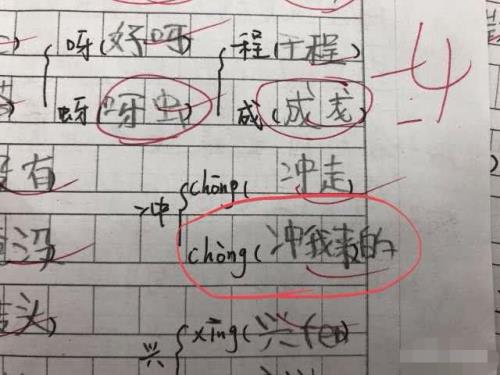 呀(好呀) 程(工程)
-4
蚜(呀虫) 成(成
没有
chōng(冲走)
冲
没
chòng(冲我来的
头
xīng(兴fèn)
兴